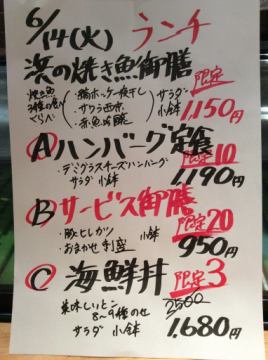 6/14(火) ランチ
浜の焼き魚御膳
限定
焼魚
3種の食べくらべ
・縞ホッケ一夜干し
・サワラ西京
・赤魚吟醸
サラダ
小鉢
1,150円
Ⓐハンバーグ定食
・デミグラスチーズハンバーグ
限定10
サラダ 小鉢
1,190円
Ⓑサービス御膳
限定20
・豚ヒレカツ 小鉢
・おまかせ刺盛
950円
Ⓒ海鮮丼 限定3
美味しいとこ
2500
8〜9種のせ
サラダ 小鉢
1,680円